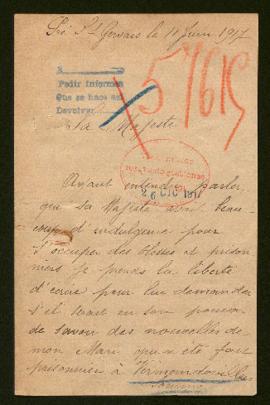 Pré St Gervais le 11 Juin 1917
Pedir Informes
Que se hace en
Devolver
57619
Sa Majesté
Ayant entendu parler
que sa Majesté avait beau-
coup d'indulgence pour
s'occuper des blessés et prison
niers je prends la liberté
d'écrire pour lui demander
s'il serait en son pouvoir
de savoir des nouvelles de
mon Mari qui a été fait
prisonnier à Vermandovillers
Somme